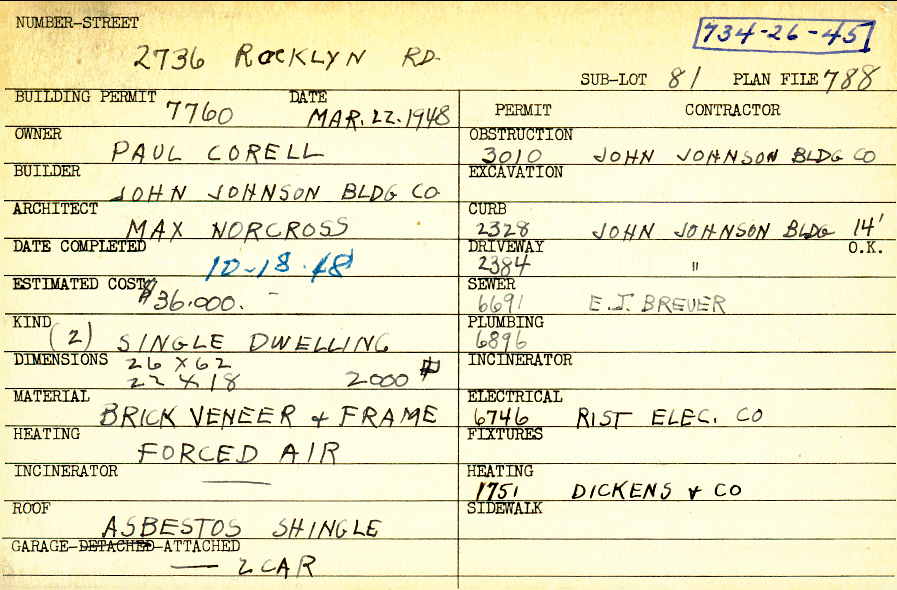 NUMBER-STREET
734-26-45
2736 ROCKLYN RD.
SUB-LOT 81 PLAN FILE 788
BUILDING PERMIT 7760 DATE MAR. 22. 1948
OWNER PAUL CORELL
BUILDER JOHN JOHNSON BLDG CO
ARCHITECT MAX NORCROSS
DATE COMPLETED 10-18-48
ESTIMATED COST $36.000. -
KIND (2) SINGLE DWELLING
DIMENSIONS 26 X 62
22 X 18 2000 #
MATERIAL BRICK VENEER & FRAME
HEATING FORCED AIR
INCINERATOR —
ROOF ASBESTOS SHINGLE
GARAGE-DETACHED-ATTACHED
— 2 CAR
PERMIT CONTRACTOR
OBSTRUCTION
3010 JOHN JOHNSON BLDG CO
EXCAVATION
CURB
2328 JOHN JOHNSON BLDG 14'
DRIVEWAY O.K.
2384 "
SEWER
6691 E.J. BREUER
PLUMBING
6896
INCINERATOR
ELECTRICAL
6746 RIST ELEC. CO
FIXTURES
HEATING
1751 DICKENS & CO
SIDEWALK